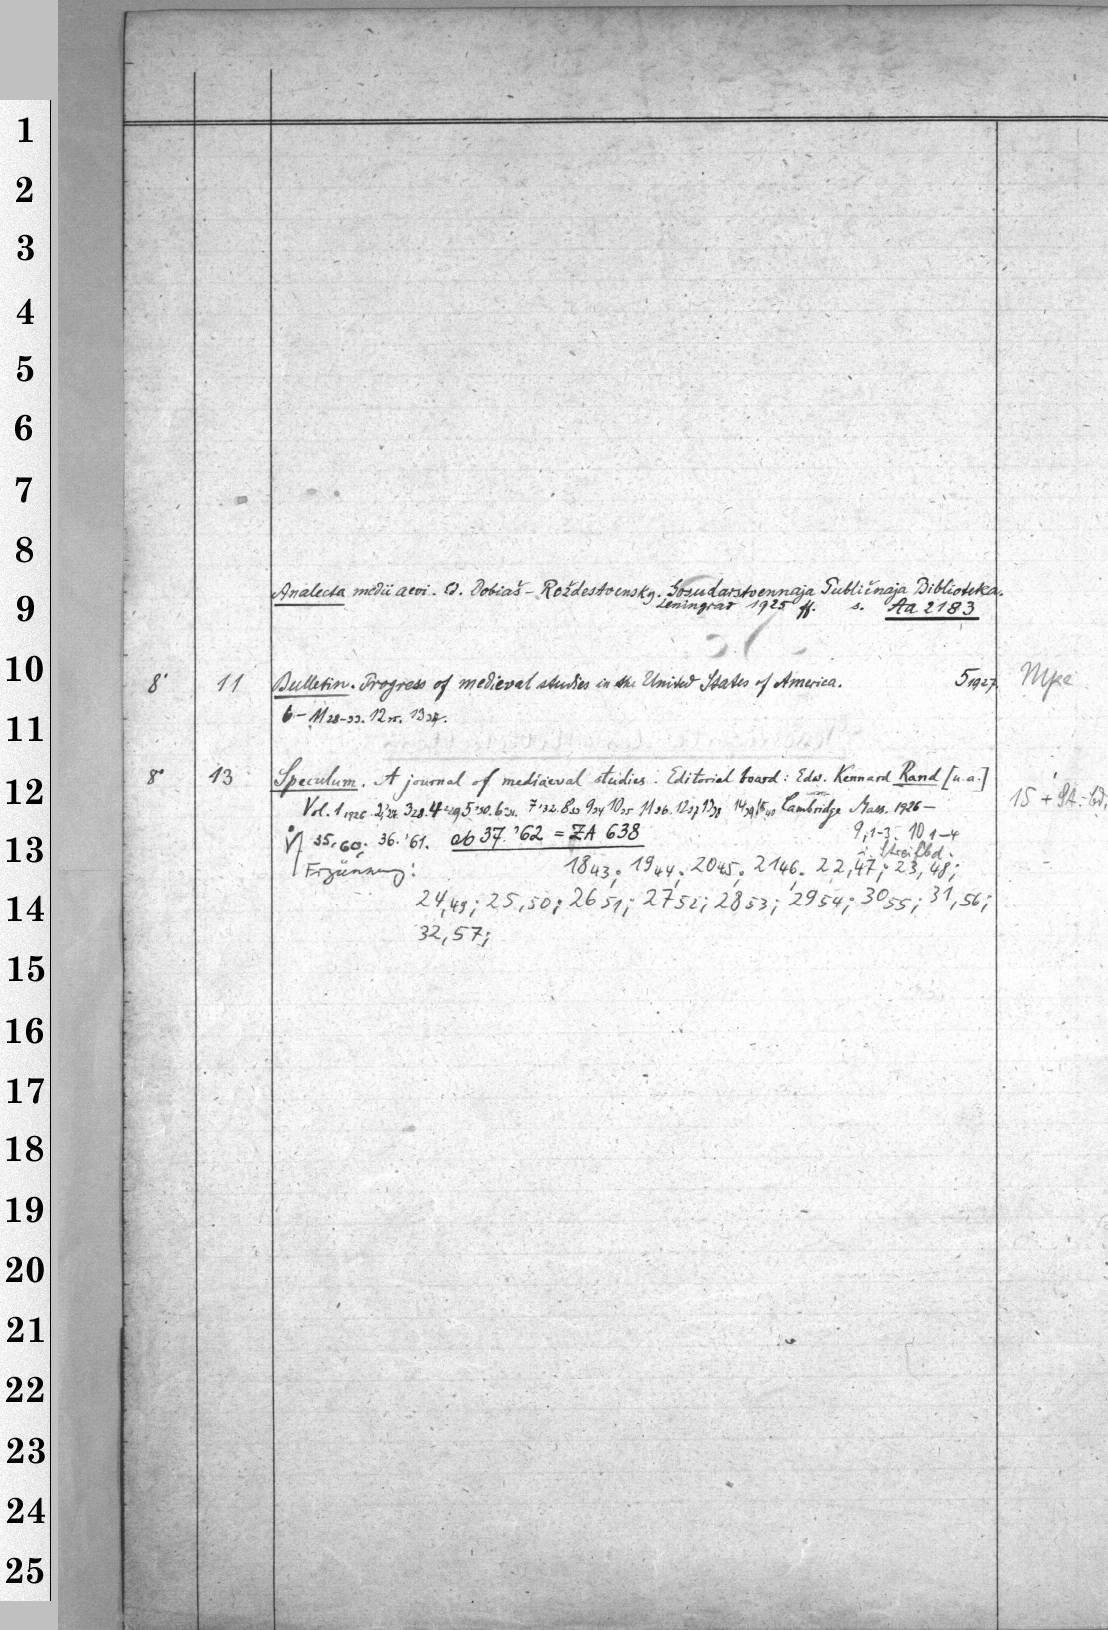 1
2
3
4
5
6
7
8
9
10
11
12
13
14
15
16
17
18
19
20
21
22
23
24
25
Analecta medii aevi. Ed. Dobiaš-Roždestvensky. Gosudarstvennaja Publičnaja Biblioteka.
Leningrad 1925 ff. s. Aa 2183
8° 11 Bulletin. Progress of medieval studies in the United States of America. 5 1927.
6-11 28-33. 12 35. 13 37.
8° 13 Speculum. A journal of mediaeval studies. Editorial board: Edw. Kennard Rand [u.a.]
Vol. 1 1926. 2,'27. 3 28. 4 '29 5 '30. 6 31. 7 '32. 8 33 9 34 10 35 11 36. 12 37 13 38 14 39 15 40 Cambridge Mass. 1926- 15 +
35, 60; 36. '61. ab 37. '62 = ZA 638 9,1-3. 10 1-4
i. Streifbd.
Ergänzung: 18 43; 19 44; 20 45; 21 46; 22,47; 23,48;
24,49; 25,50; 26 51; 27 52; 28 53; 29 54; 30 55; 31,56;
32,57;